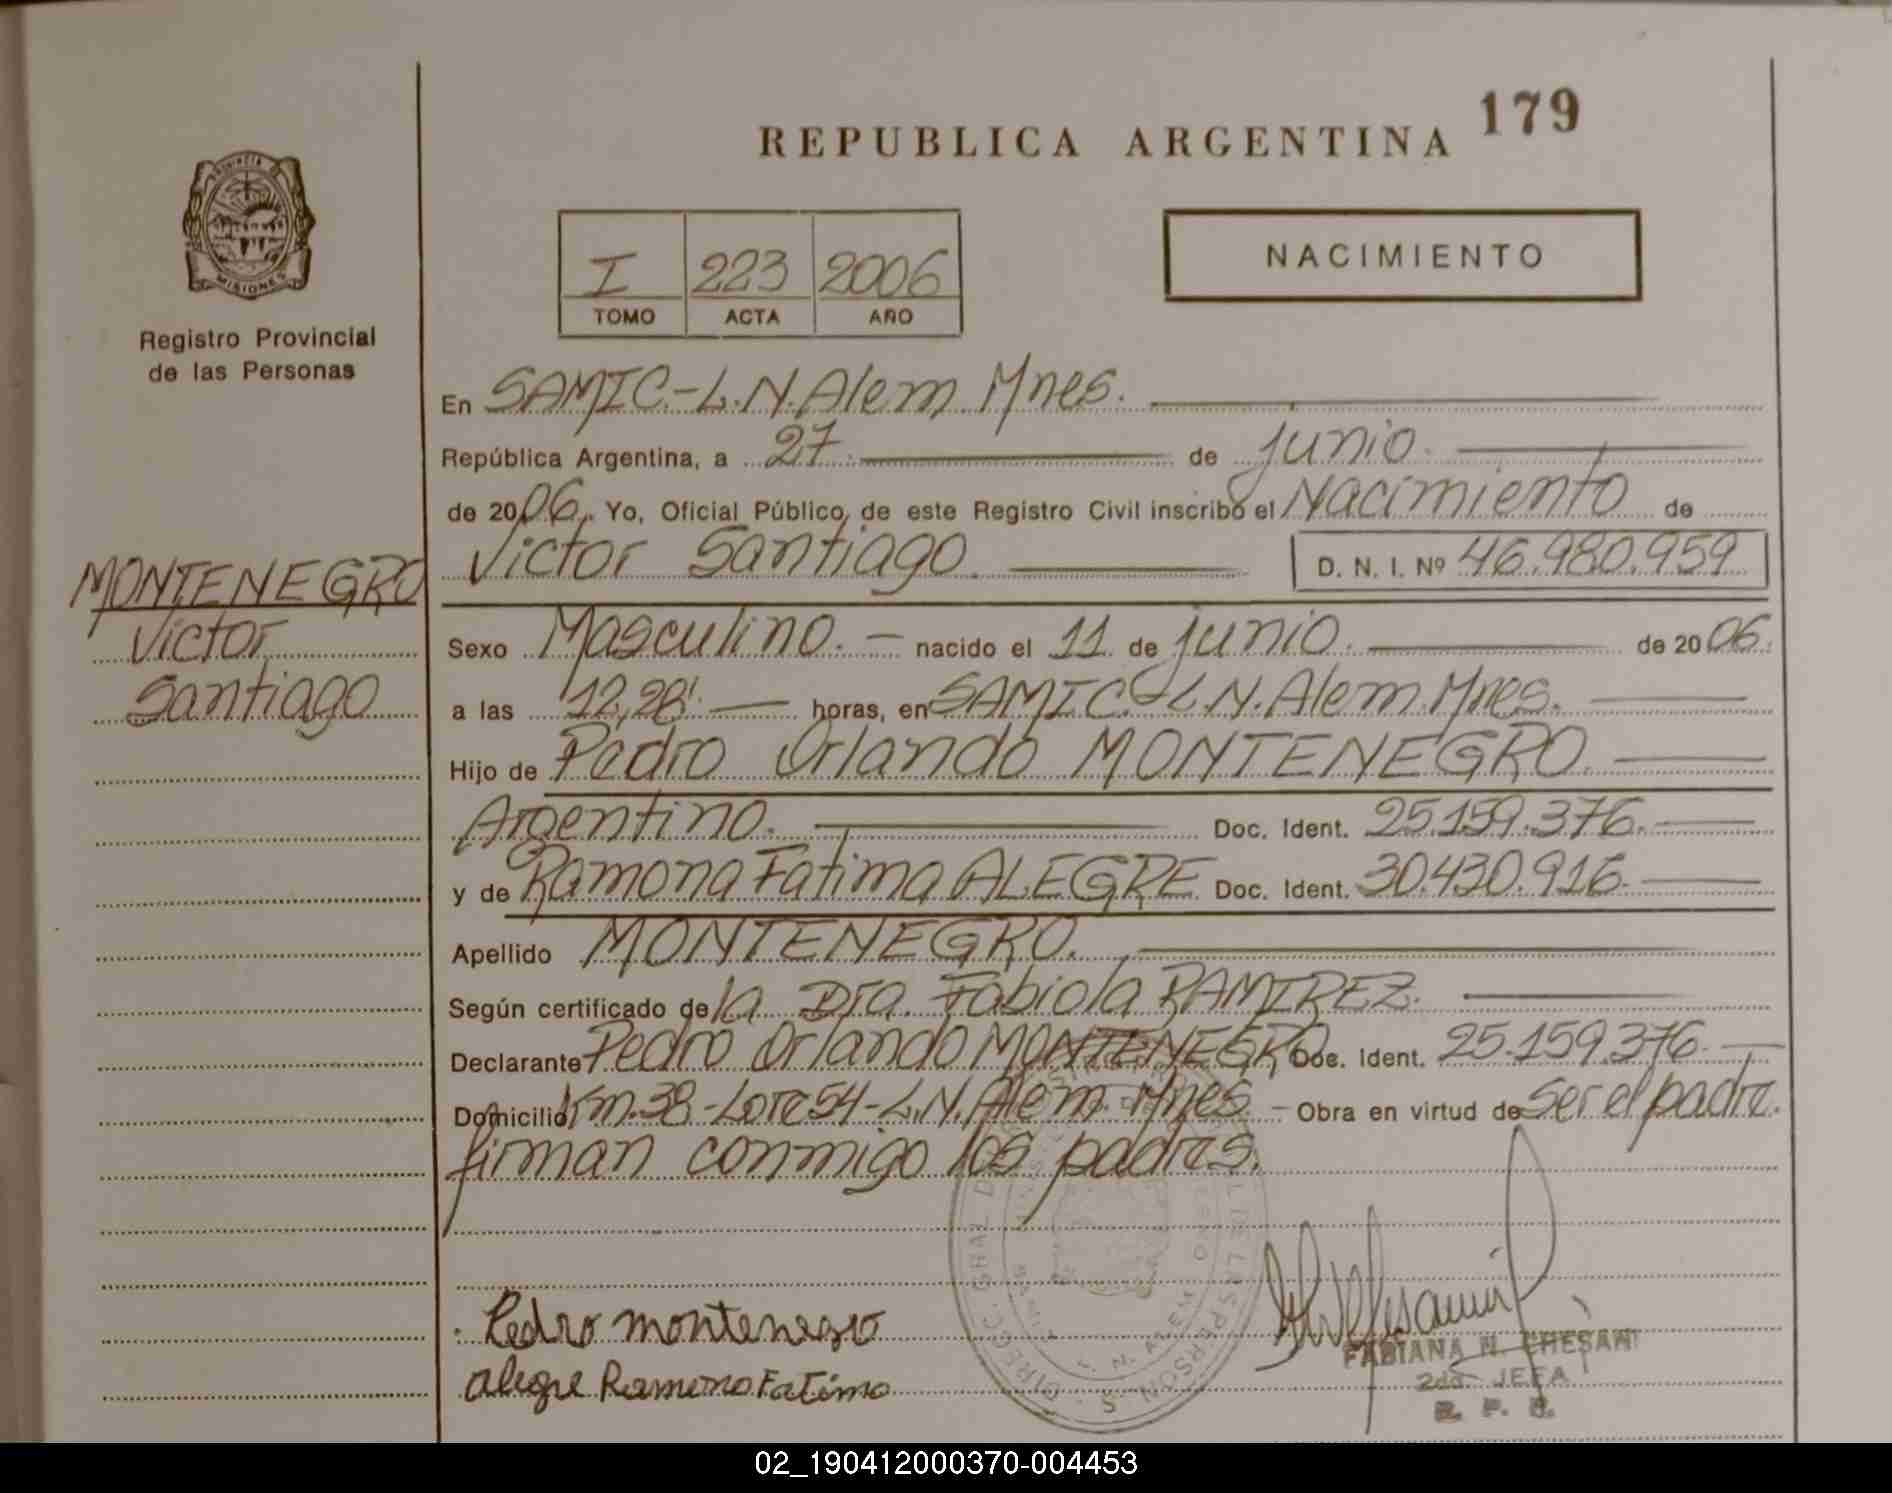 REPUBLICA ARGENTINA 179
PROVINCIA DE
MISIONES
Registro Provincial
de las Personas
I 223 2006
TOMO ACTA AÑO
NACIMIENTO
En SAMIC.-L.N.Alem Mnes.
República Argentina, a 27 de junio.
de 2006. Yo, Oficial Público, de este Registro Civil inscribo el Nacimiento de
Victor Santiago. D. N. I. Nº 46.980.959
MONTENEGRO
Victor
Santiago
Sexo Masculino. nacido el 11 de junio. de 2006.
a las 12,28'. horas, en SAMIC.-L.N.Alem.Mnes.
Hijo de Pedro Orlando MONTENEGRO.
Argentino. Doc. Ident. 25.159.376.
y de Ramona Fatima ALEGRE Doc. Ident. 30.430.916.
Apellido MONTENEGRO.
Según certificado de la Dra. Fabiola RAMIREZ.
Declarante Pedro Orlando MONTENEGRO Doc. Ident. 25.159.376.
Domicilio Km.38-Lote 54-L.N.Alem.Mnes. - Obra en virtud de ser el padre.
firman conmigo los padres.
Pedro montenegro
alegre Ramona Fatima
FABIANA N. CHESANI
2da. JEFA
R. P. P.
02_190412000370-004453